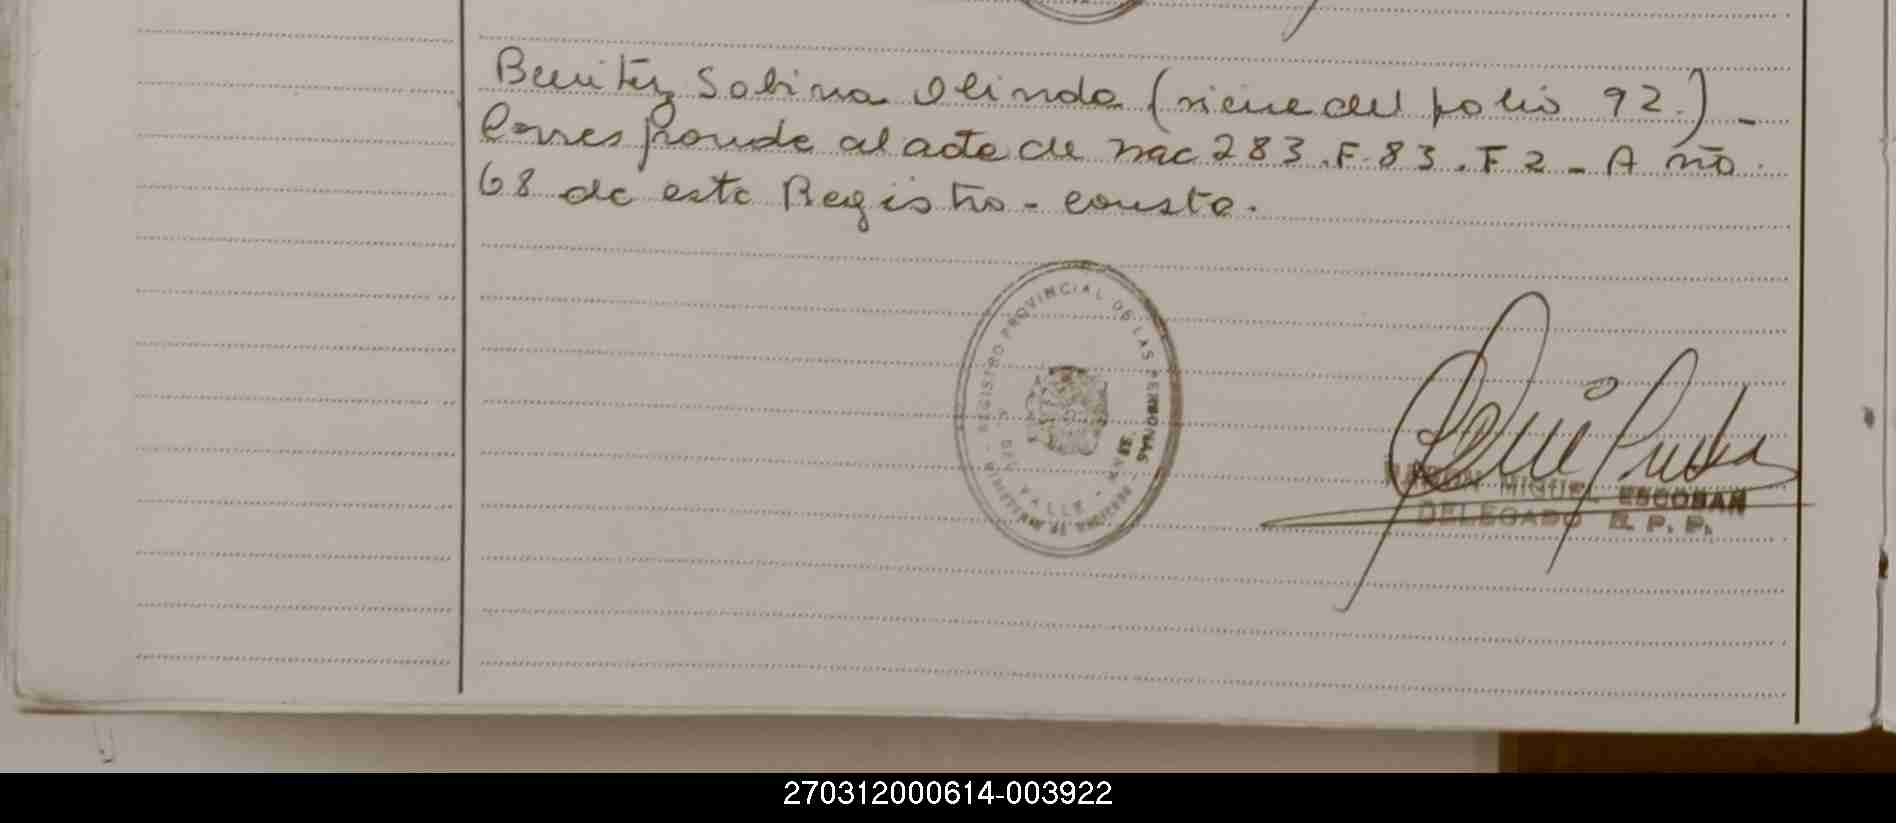 Benitez Sabina Olinda (viene del folio 92.) -
Corresponde al acta de nac 283.F.83.T.2 - Año
68 de este Registro - consta.
REGISTRO PROVINCIAL DE LAS PERSONAS
DEL VALLE
RAMON MIGUEL ESCOBAR
DELEGADO R. P. P.
270312000614-003922